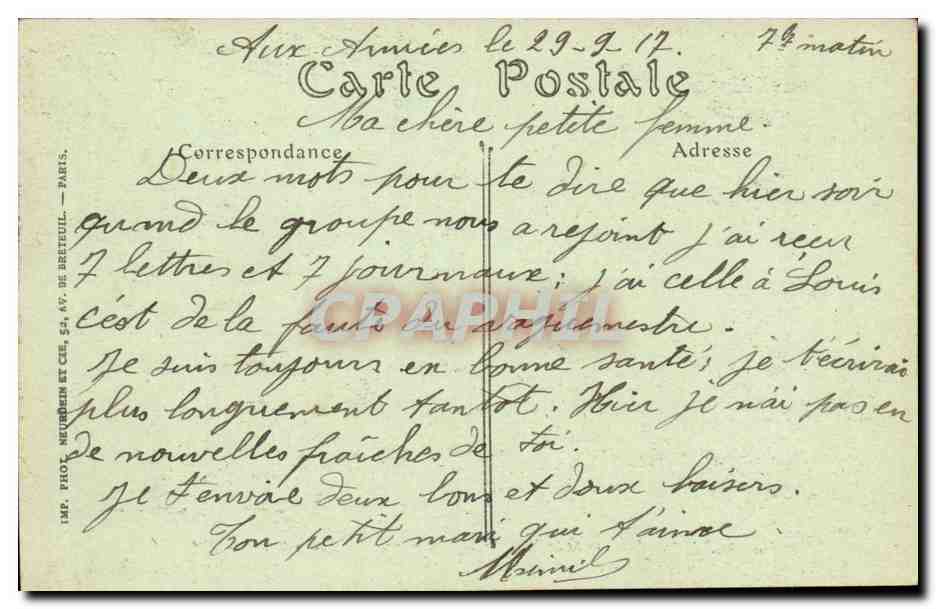 Aux Armées le 29-9-17. 7h matin
Carte Postale
Ma chère petite femme.
Correspondance Adresse
Deux mots pour te dire que hier soir
quand le groupe nous a rejoint j'ai reçu
7 lettres et 7 journaux; j'ai celle à Louis
c'est de la faute du vaguemestre.
Je suis toujours en bonne santé; je t'écrirai
plus longuement tantot. Hier je n'ai pas eu
de nouvelles fraîches de toi.
Je t'envoie deux bons et doux baisers.
Ton petit mari qui t'aime
IMP. PHOT. NEURDEIN ET CIE, 52, AV. DE BRETEUIL. — PARIS.
CPAPHIL